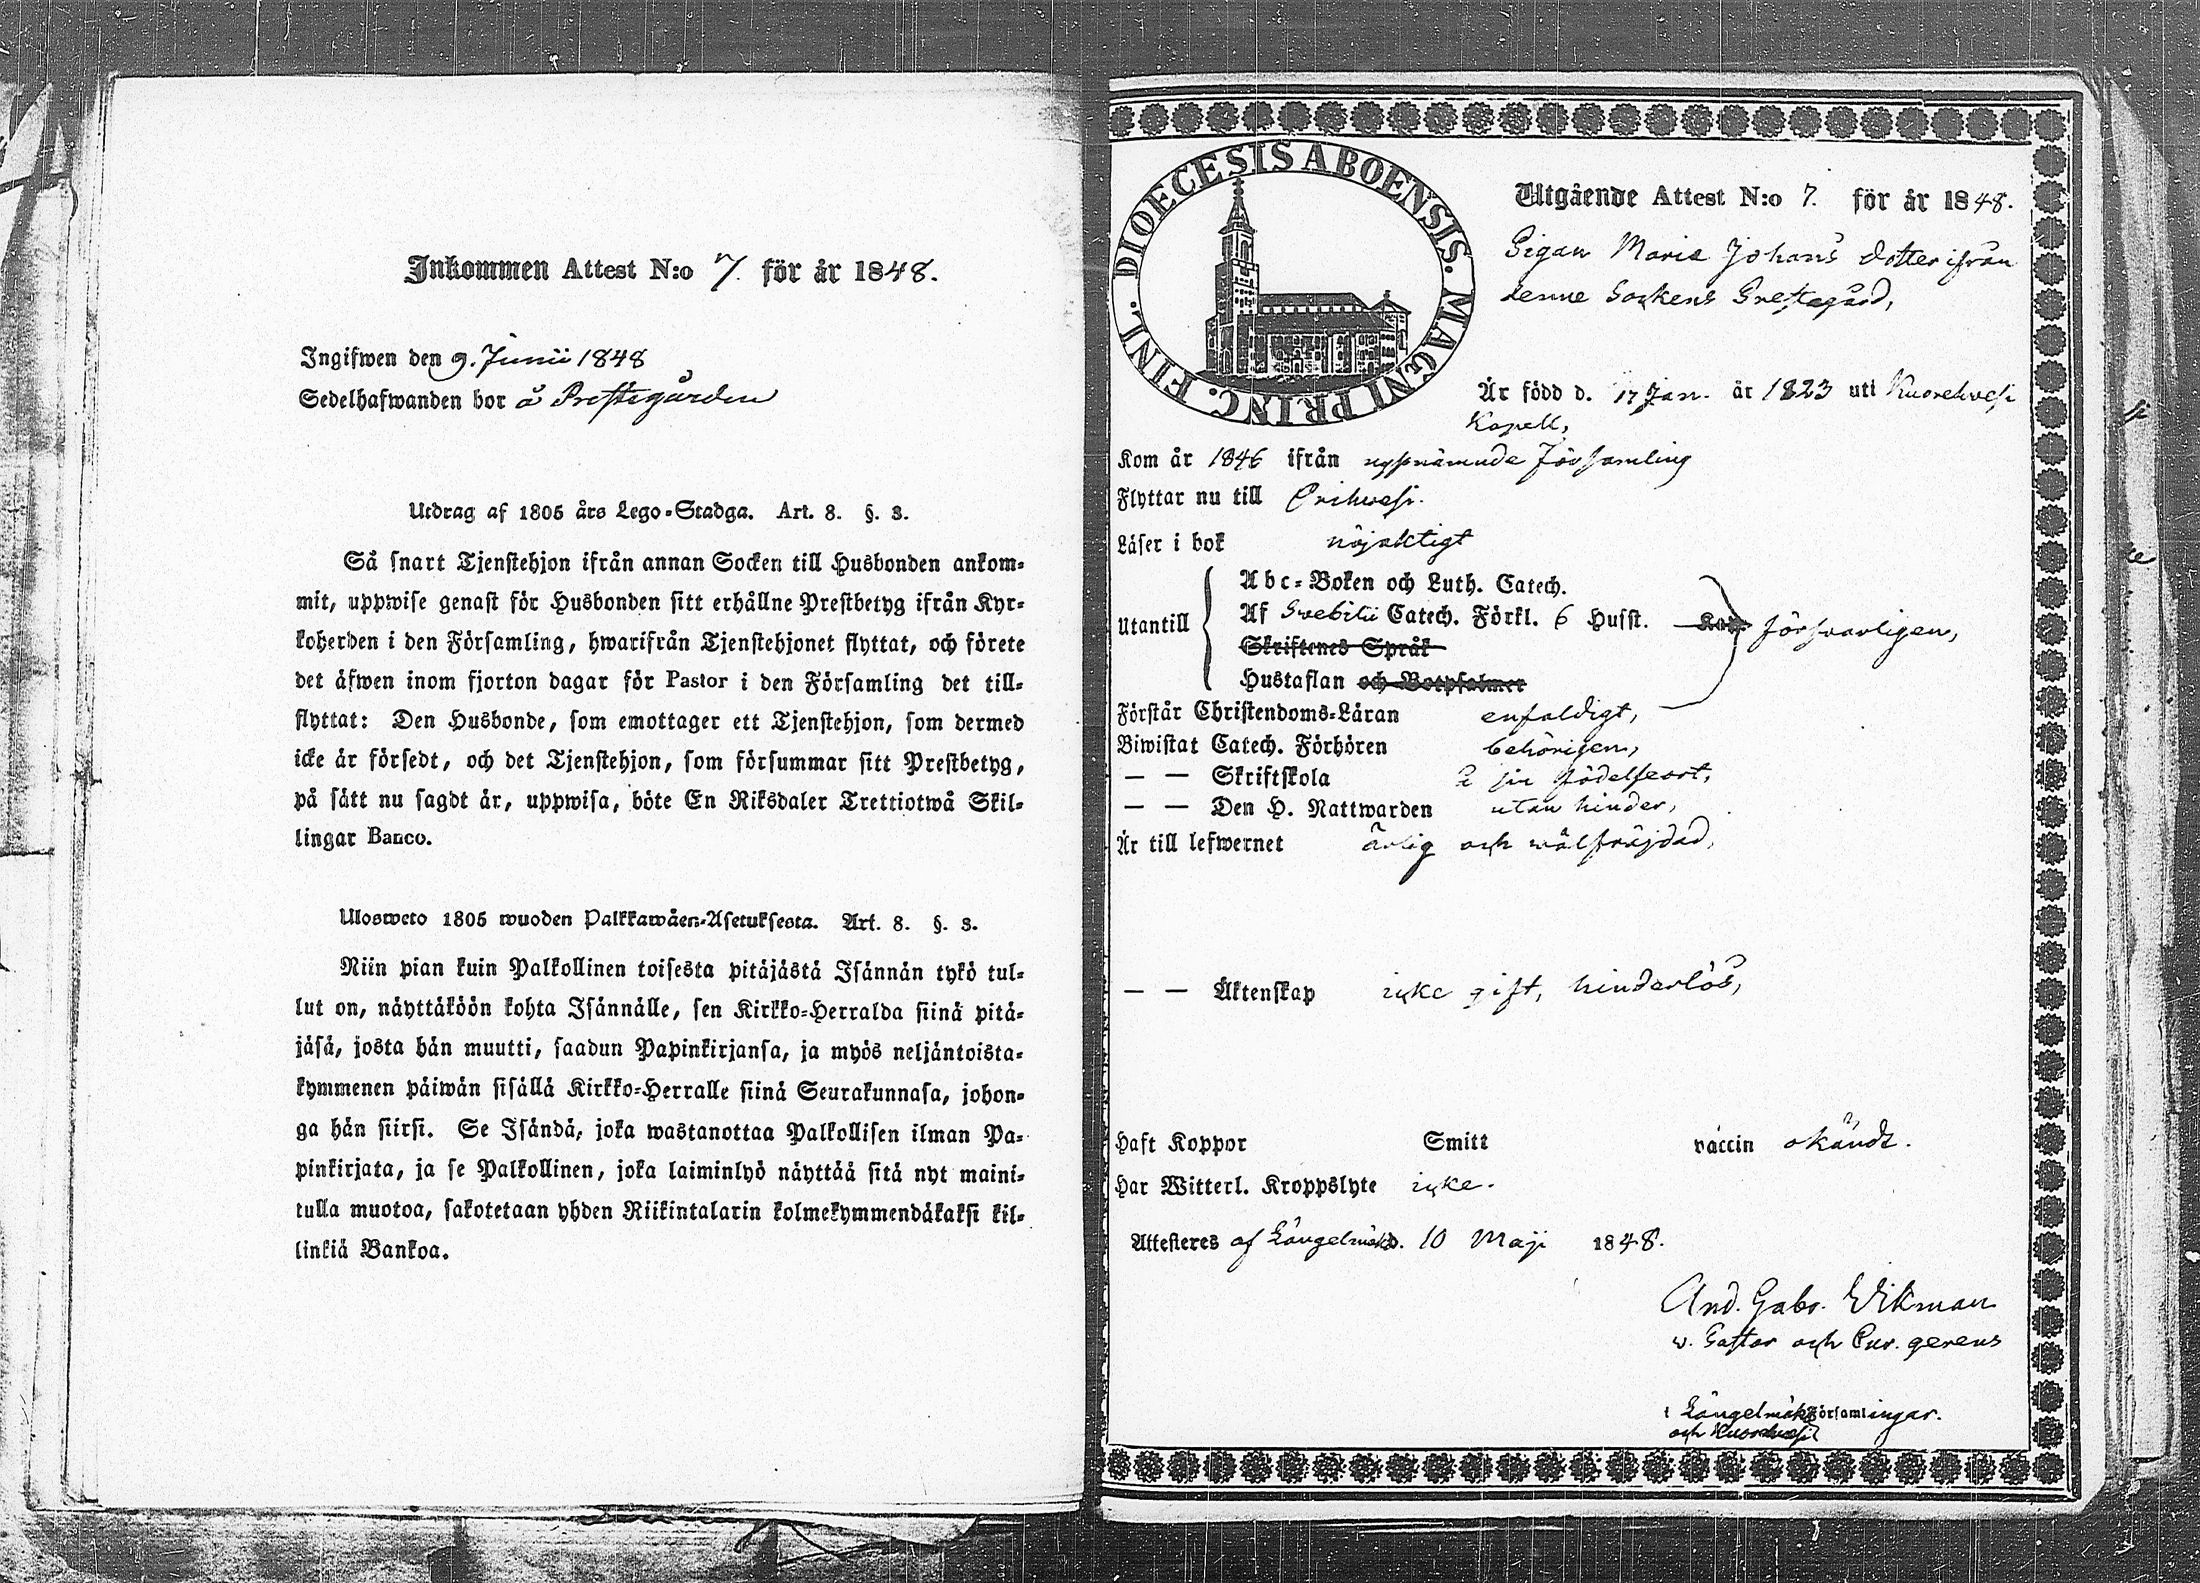 Inkommen Attest N:o 7. för år 1848.
Ingifwen den 9. Junii 1848
Sedelhafwanden bor å Prestegården
Utdrag af 1805 års Lego-Stadga. Art. 8. §. 3.
Så snart Tjenstehjon ifrån annan Socken till Husbonden ankom-
mit, uppwise genast för Husbonden sitt erhållne Prestbetyg ifrån Kyr-
koherden i den Församling, hwarifrån Tjenstehjonet flyttat, och förete
det äfwen inom fjorton dagar för Pastor i den Församling det till-
flyttat: Den Husbonde, som emottager ett Tjenstehjon, som dermed
icke är försedt, och det Tjenstehjon, som försummar sitt Prestbetyg,
på sätt nu sagdt är, uppwisa, böte En Riksdaler Trettiotwå Skil-
lingar Banco.
Ulosweto 1805 wuoden Palkkawäen-Asetuksesta. Art. 8. §. 3.
Niin pian kuin Palkollinen toisesta pitäjästä Isännän tykö tul-
lut on, näyttäköön kohta Isännälle, sen Kirkko-Herralda siinä pitä-
jäsä, josta hän muutti, saadun Papinkirjansa, ja myös neljäntoista-
kymmenen päiwän sisällä Kirkko-Herralle siinä Seurakunnasa, johon-
ga hän siirsi. Se Isändä, joka wastanottaa Palkollisen ilman Pa-
pinkirjata, ja se Palkollinen, joka laiminlyö näyttää sitä nyt maini-
tulla muotoa, sakotetaan yhden Riikintalarin kolmekymmendäkaksi kil-
linkiä Bankoa.
DIOECESIS ABOENSIS. MAGNI PRINC. FINL.
Utgående Attest N:o 7. för år 1848.
Pigan Maria Johans dotter ifrån
denne Sockens Prestegård,
Är född d. 17 Jan. år 1823 uti Kuorehvesi
Kapell,
Kom år 1846 ifrån nyssnämnde Församling
Flyttar nu till Orihvesi.
Läser i bok nöjaktigt
Utantill
Abc-Boken och Luth. Catech.
Af Svebilii Catech. Förkl. 6 Husst. försvarligen,
Skriftenes Språk
Hustaflan och Botpsalmer
Förstår Christendoms-Läran enfaldigt,
Biwistat Catech. Förhören behörigen,
— — Skriftskola i sin födelseort,
— — Den H. Nattwarden utan hinder,
Är till lefwernet ärlig och wälfräjdad,
— — Äktenskap icke gift, hinderlös,
Haft Koppor Smitt vaccin okändt.
Har Witterl. Kroppslyte icke.
Attesteres af Längelmäki d. 10 Maji 1848.
And. Gabr. Wikman
v. Pastor och Cur. gerens
i Längelmäki Församlingar.
och Kuorehvesi